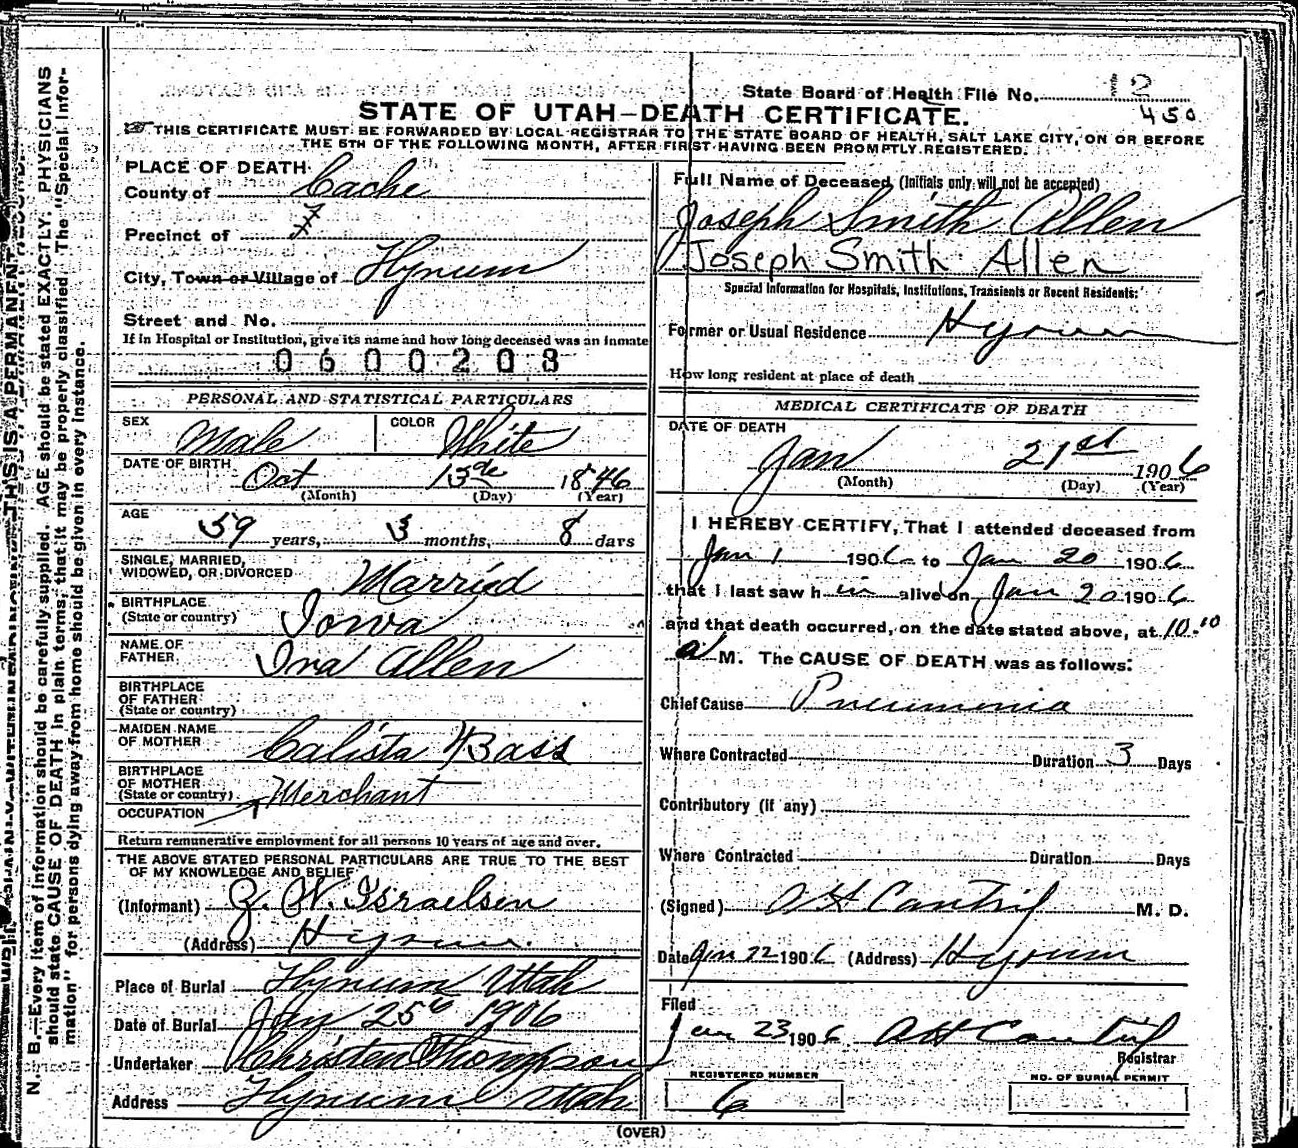 State Board of Health File No. 12
450
STATE OF UTAH—DEATH CERTIFICATE.
THIS CERTIFICATE MUST BE FORWARDED BY LOCAL REGISTRAR TO THE STATE BOARD OF HEALTH, SALT LAKE CITY, ON OR BEFORE
THE 5TH OF THE FOLLOWING MONTH, AFTER FIRST HAVING BEEN PROMPTLY REGISTERED.
PLACE OF DEATH.
County of Cache
Precinct of
City, Town or Village of Hyrum
Street and No.
If in Hospital or Institution, give its name and how long deceased was an inmate
0600208
PERSONAL AND STATISTICAL PARTICULARS
SEX Male COLOR White
DATE OF BIRTH Oct 13th 1846
(Month) (Day) (Year)
AGE 59 years, 3 months, 8 days
SINGLE, MARRIED,
WIDOWED, OR DIVORCED Married
BIRTHPLACE
(State or country) Iowa
NAME OF
FATHER Ira Allen
BIRTHPLACE
OF FATHER
(State or country)
MAIDEN NAME
OF MOTHER Calista Bass
BIRTHPLACE
OF MOTHER
(State or country) Merchant
OCCUPATION
Return remunerative employment for all persons 10 years of age and over.
THE ABOVE STATED PERSONAL PARTICULARS ARE TRUE TO THE BEST
OF MY KNOWLEDGE AND BELIEF
(Informant) W. Israelsen
(Address) Hyrum
Place of Burial Hyrum Utah
Date of Burial Jan 25th 1906
Undertaker Christen Thompson
Address Hyrum Utah
Full Name of Deceased (Initials only will not be accepted)
Joseph Smith Allen
Joseph Smith Allen
Special Information for Hospitals, Institutions, Transients or Recent Residents:
Former or Usual Residence Hyrum
How long resident at place of death
MEDICAL CERTIFICATE OF DEATH
DATE OF DEATH
Jan 21st 1906
(Month) (Day) (Year)
I HEREBY CERTIFY, That I attended deceased from
Jan 1 1906 to Jan 20 1906
that I last saw h im alive on Jan 20 1906
and that death occurred, on the date stated above, at 10.10
a M. The CAUSE OF DEATH was as follows:
Chief Cause Pneumonia
Where Contracted Duration 3 Days
Contributory (if any)
Where Contracted Duration Days
(Signed) A H Cantril M. D.
Date Jan 22 1906 (Address) Hyrum
Filed
Jan 23 1906 A H Cantril
Registrar
REGISTERED NUMBER
6
NO. OF BURIAL PERMIT
(OVER)
THIS IS A PERMANENT
N. B.—Every item of information should be carefully supplied. AGE should be stated EXACTLY. PHYSICIANS
should state CAUSE OF DEATH in plain terms, that it may be properly classified. The "Special Infor-
mation" for persons dying away from home should be given in every instance.